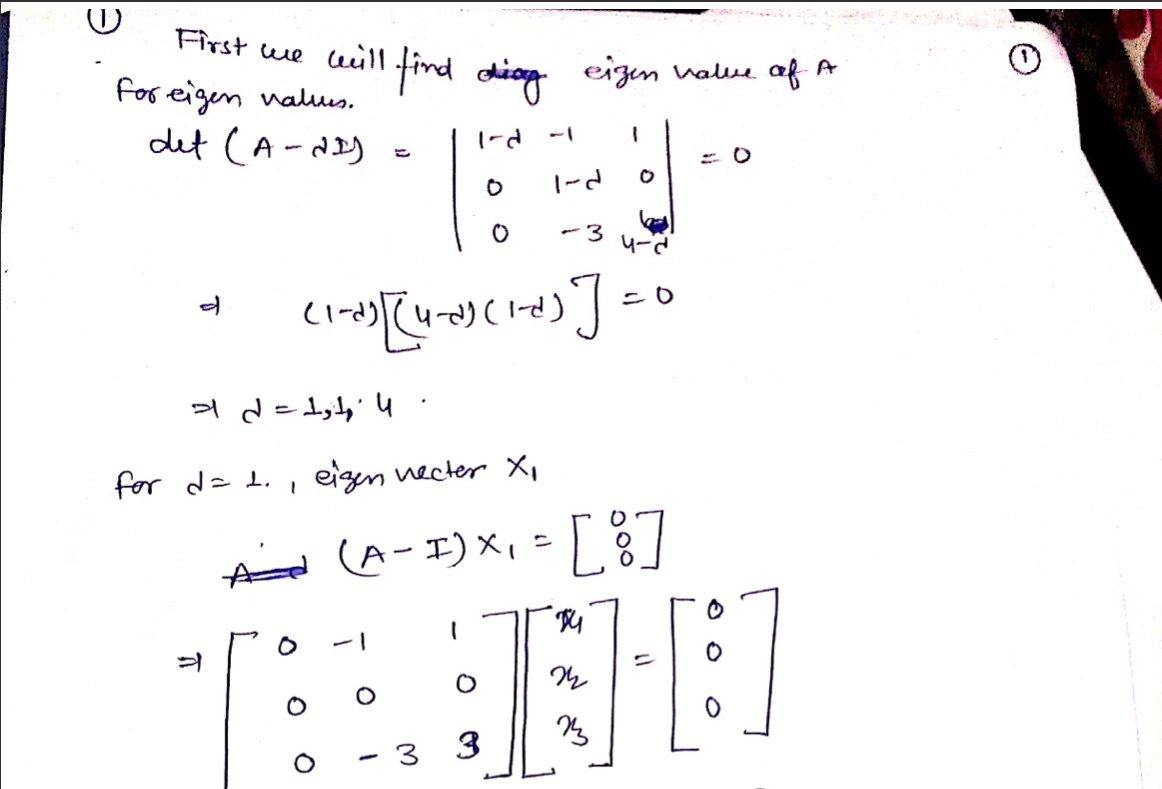 ① ①
First we will find eigen value of A
for eigen values.
det (A - λI) = | 1-λ -1 1 | = 0
| 0 1-λ 0 |
| 0 -3 4-λ |
⇒ (1-λ)[(4-λ)(1-λ)] = 0
⇒ λ = 1, 1, 4.
for λ = 1., eigen vecter X₁
(A - I) X₁ = [ 0
0
0 ]
⇒ [ 0 -1 1 ] [ x₁ ] = [ 0 ]
[ 0 0 0 ] [ x₂ ] [ 0 ]
[ 0 -3 3 ] [ x₃ ] [ 0 ]